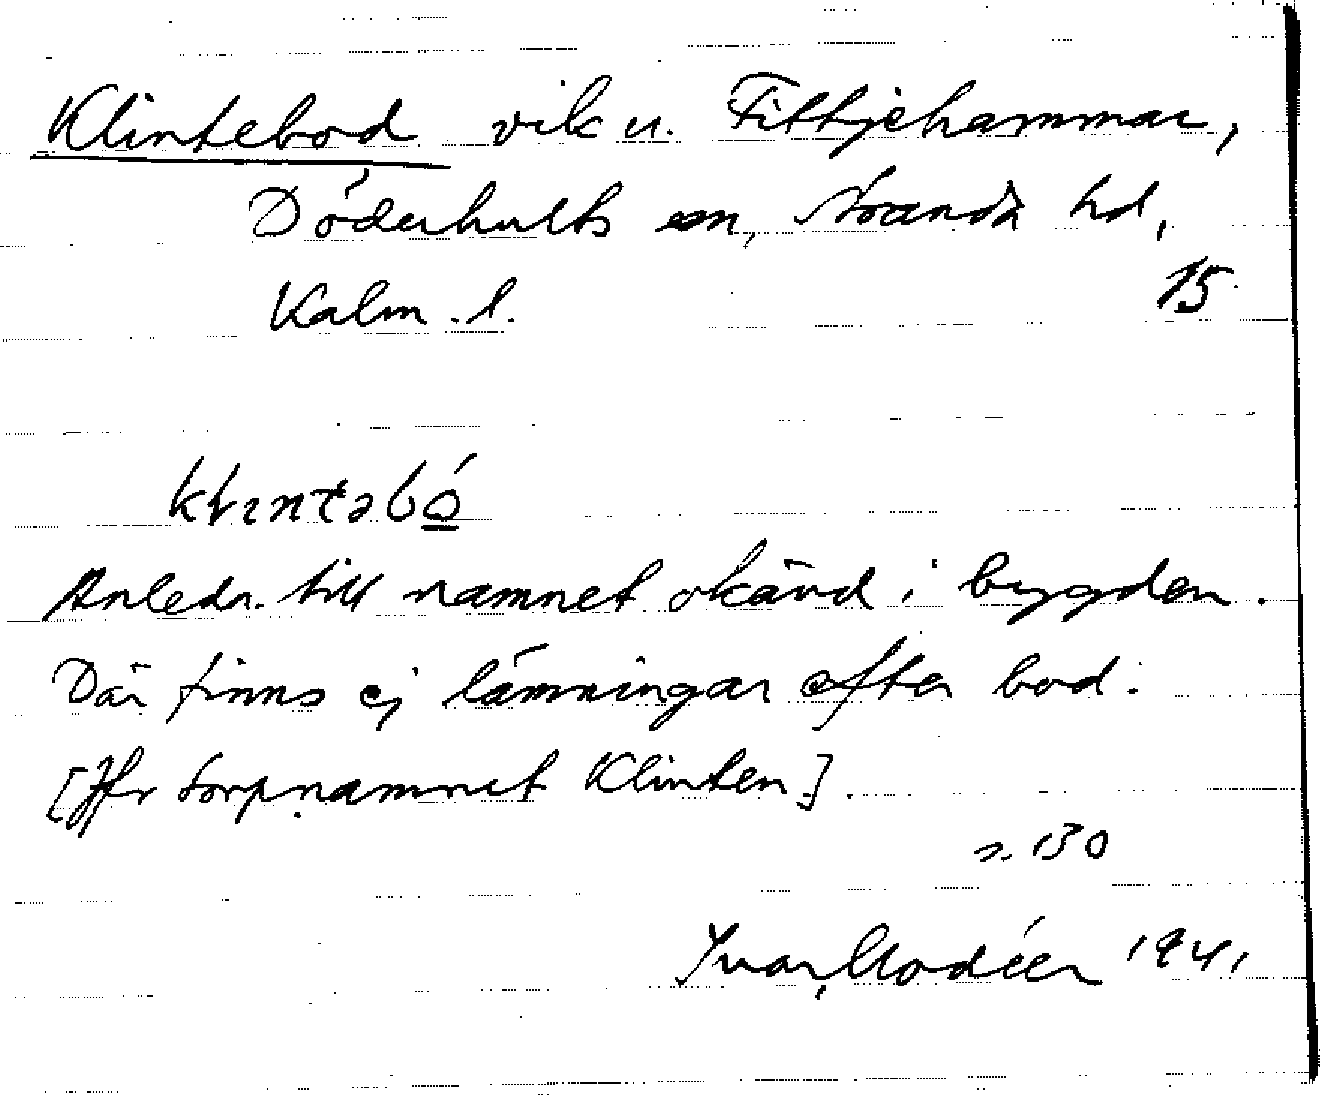 Klintebod vik u. Fittjehammar,
Döderhults sn, Stranda hd,
Kalm. l. 15
klintəbó
Anledn. till namnet okänd i bygden.
Där finns ej lämningar efter bod.
[Jfr torpnamnet Klinten].
s. 130
Ivar Modéer 1941